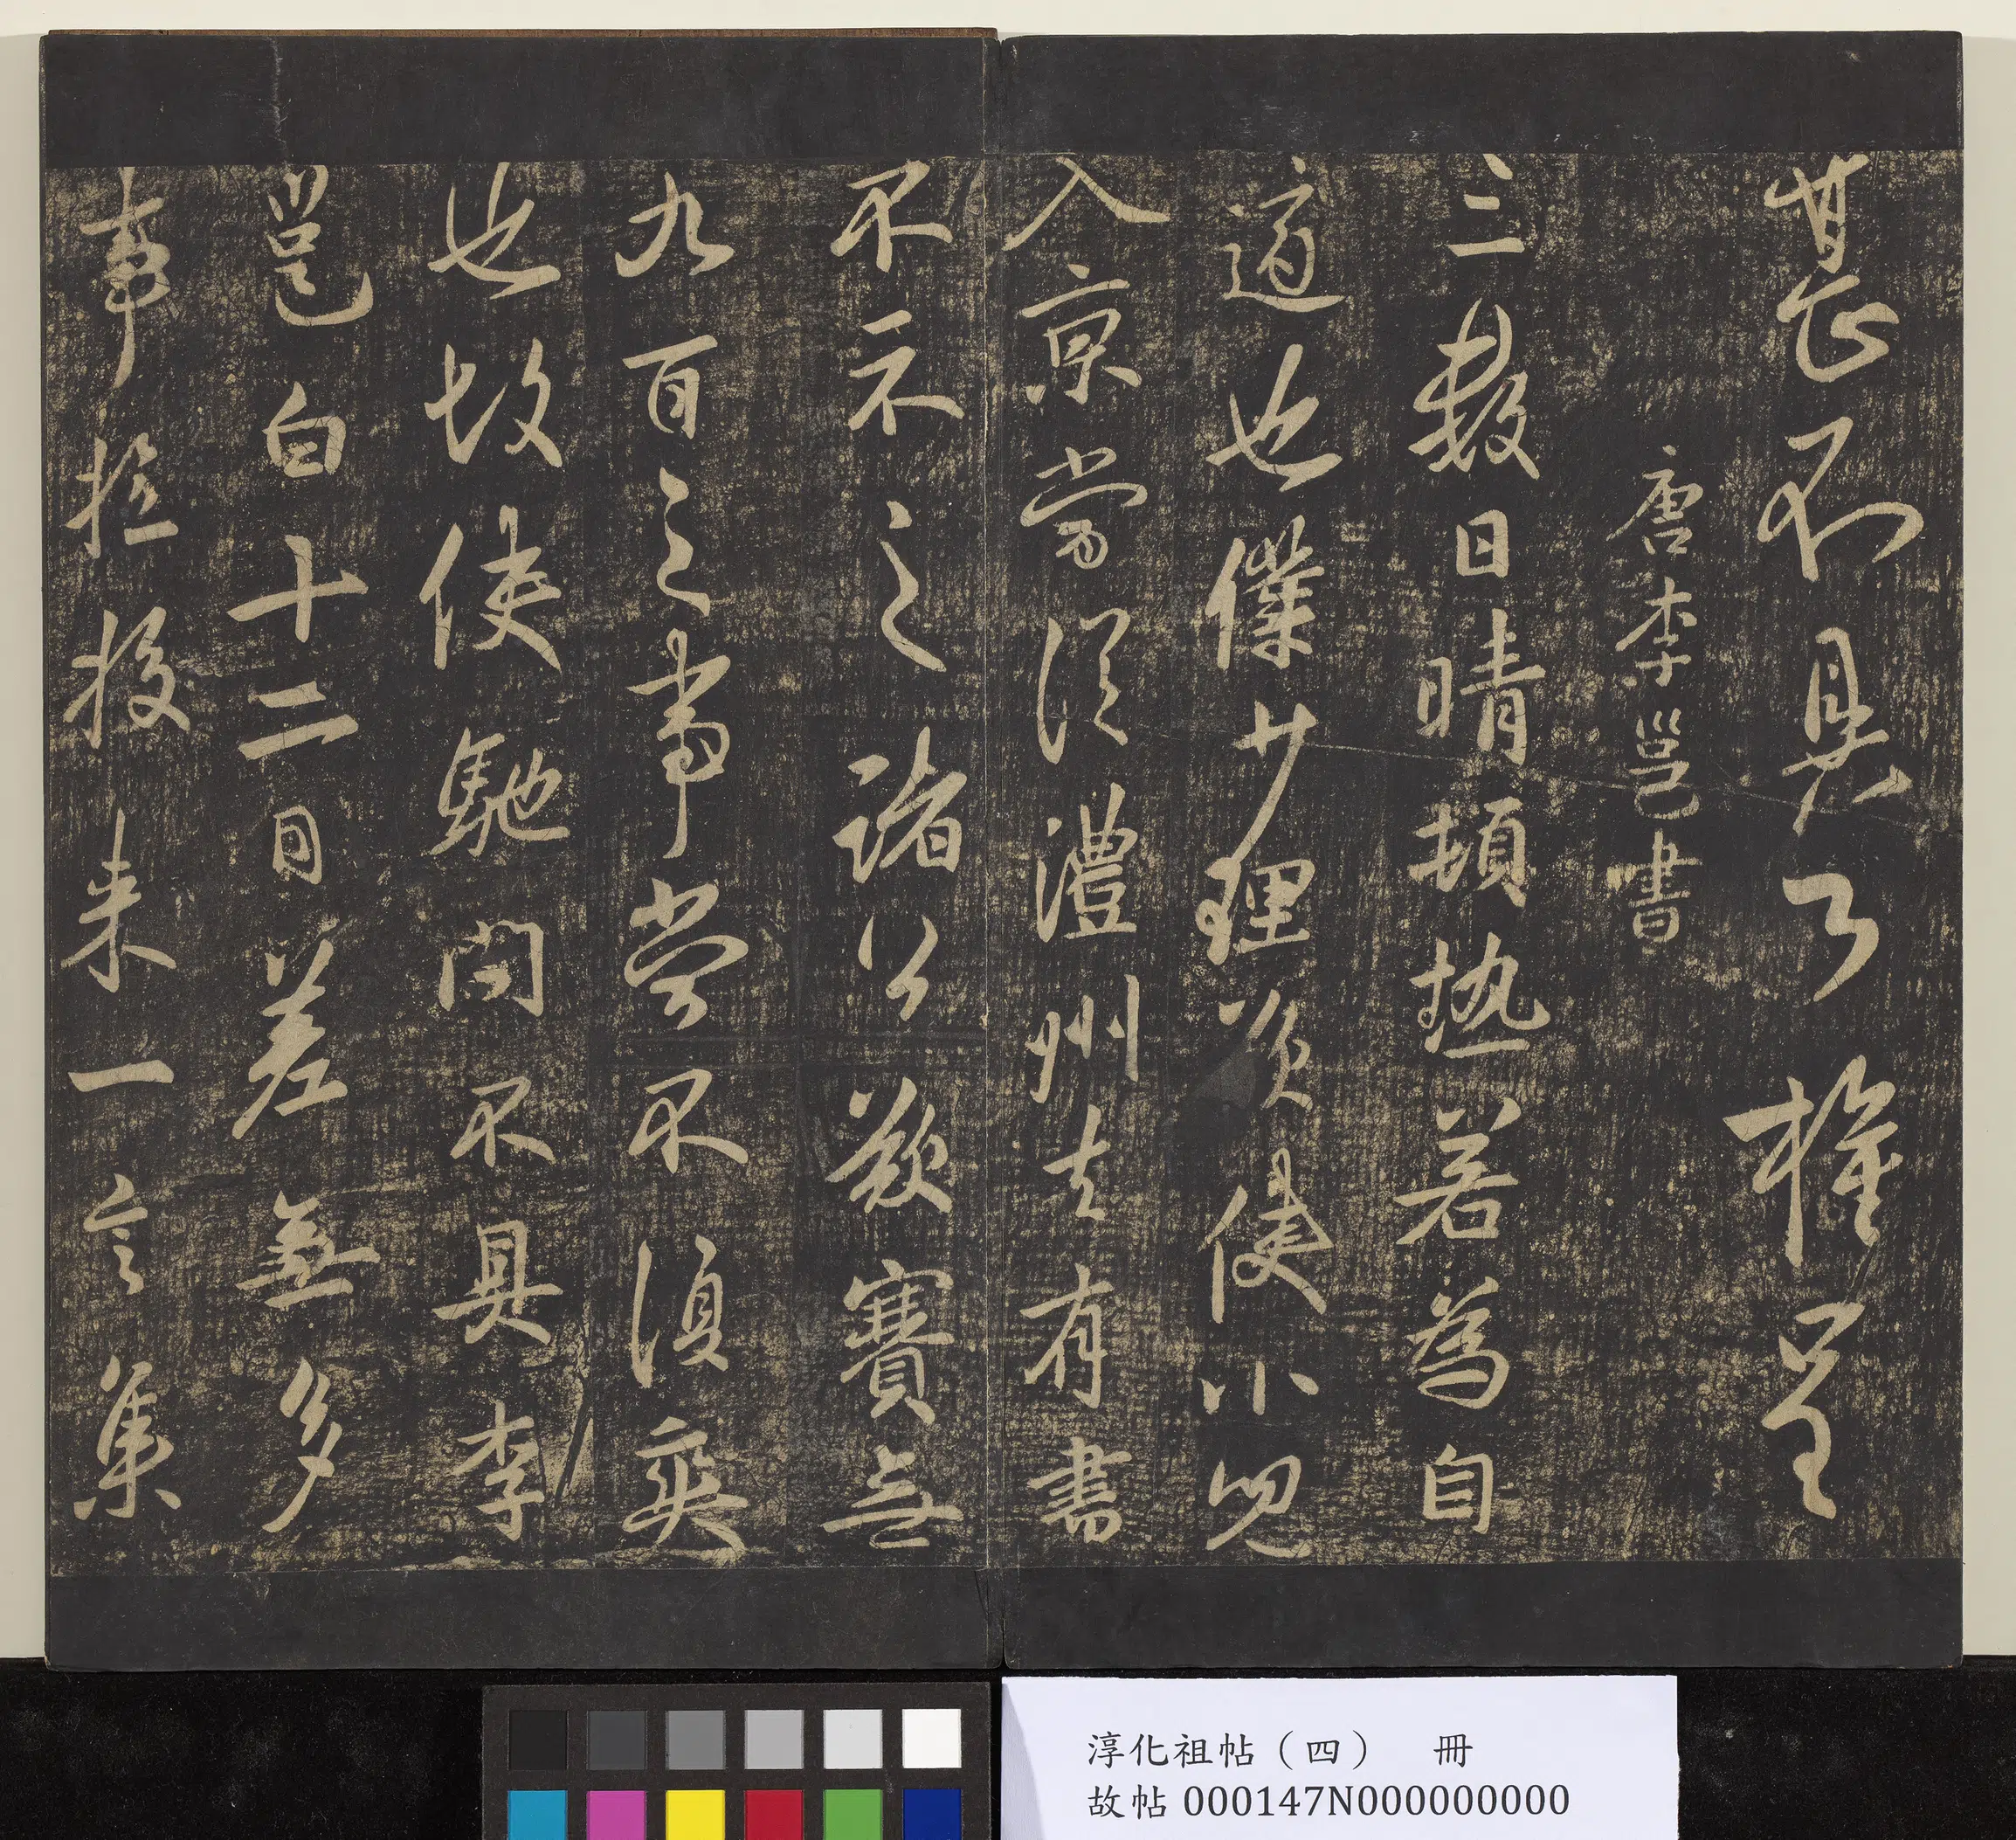 甚不具了權呈
唐李邕書
三數日晴頓熱若為自
適也僕少理資使小兒
入京當從澧州去有書
不示之諸公欲賽無
九百之事當不復奭
也故使馳問不具李
邕白十二日差無多
事擬投來一言集
淳化祖帖（四） 冊
故帖 000147N000000000